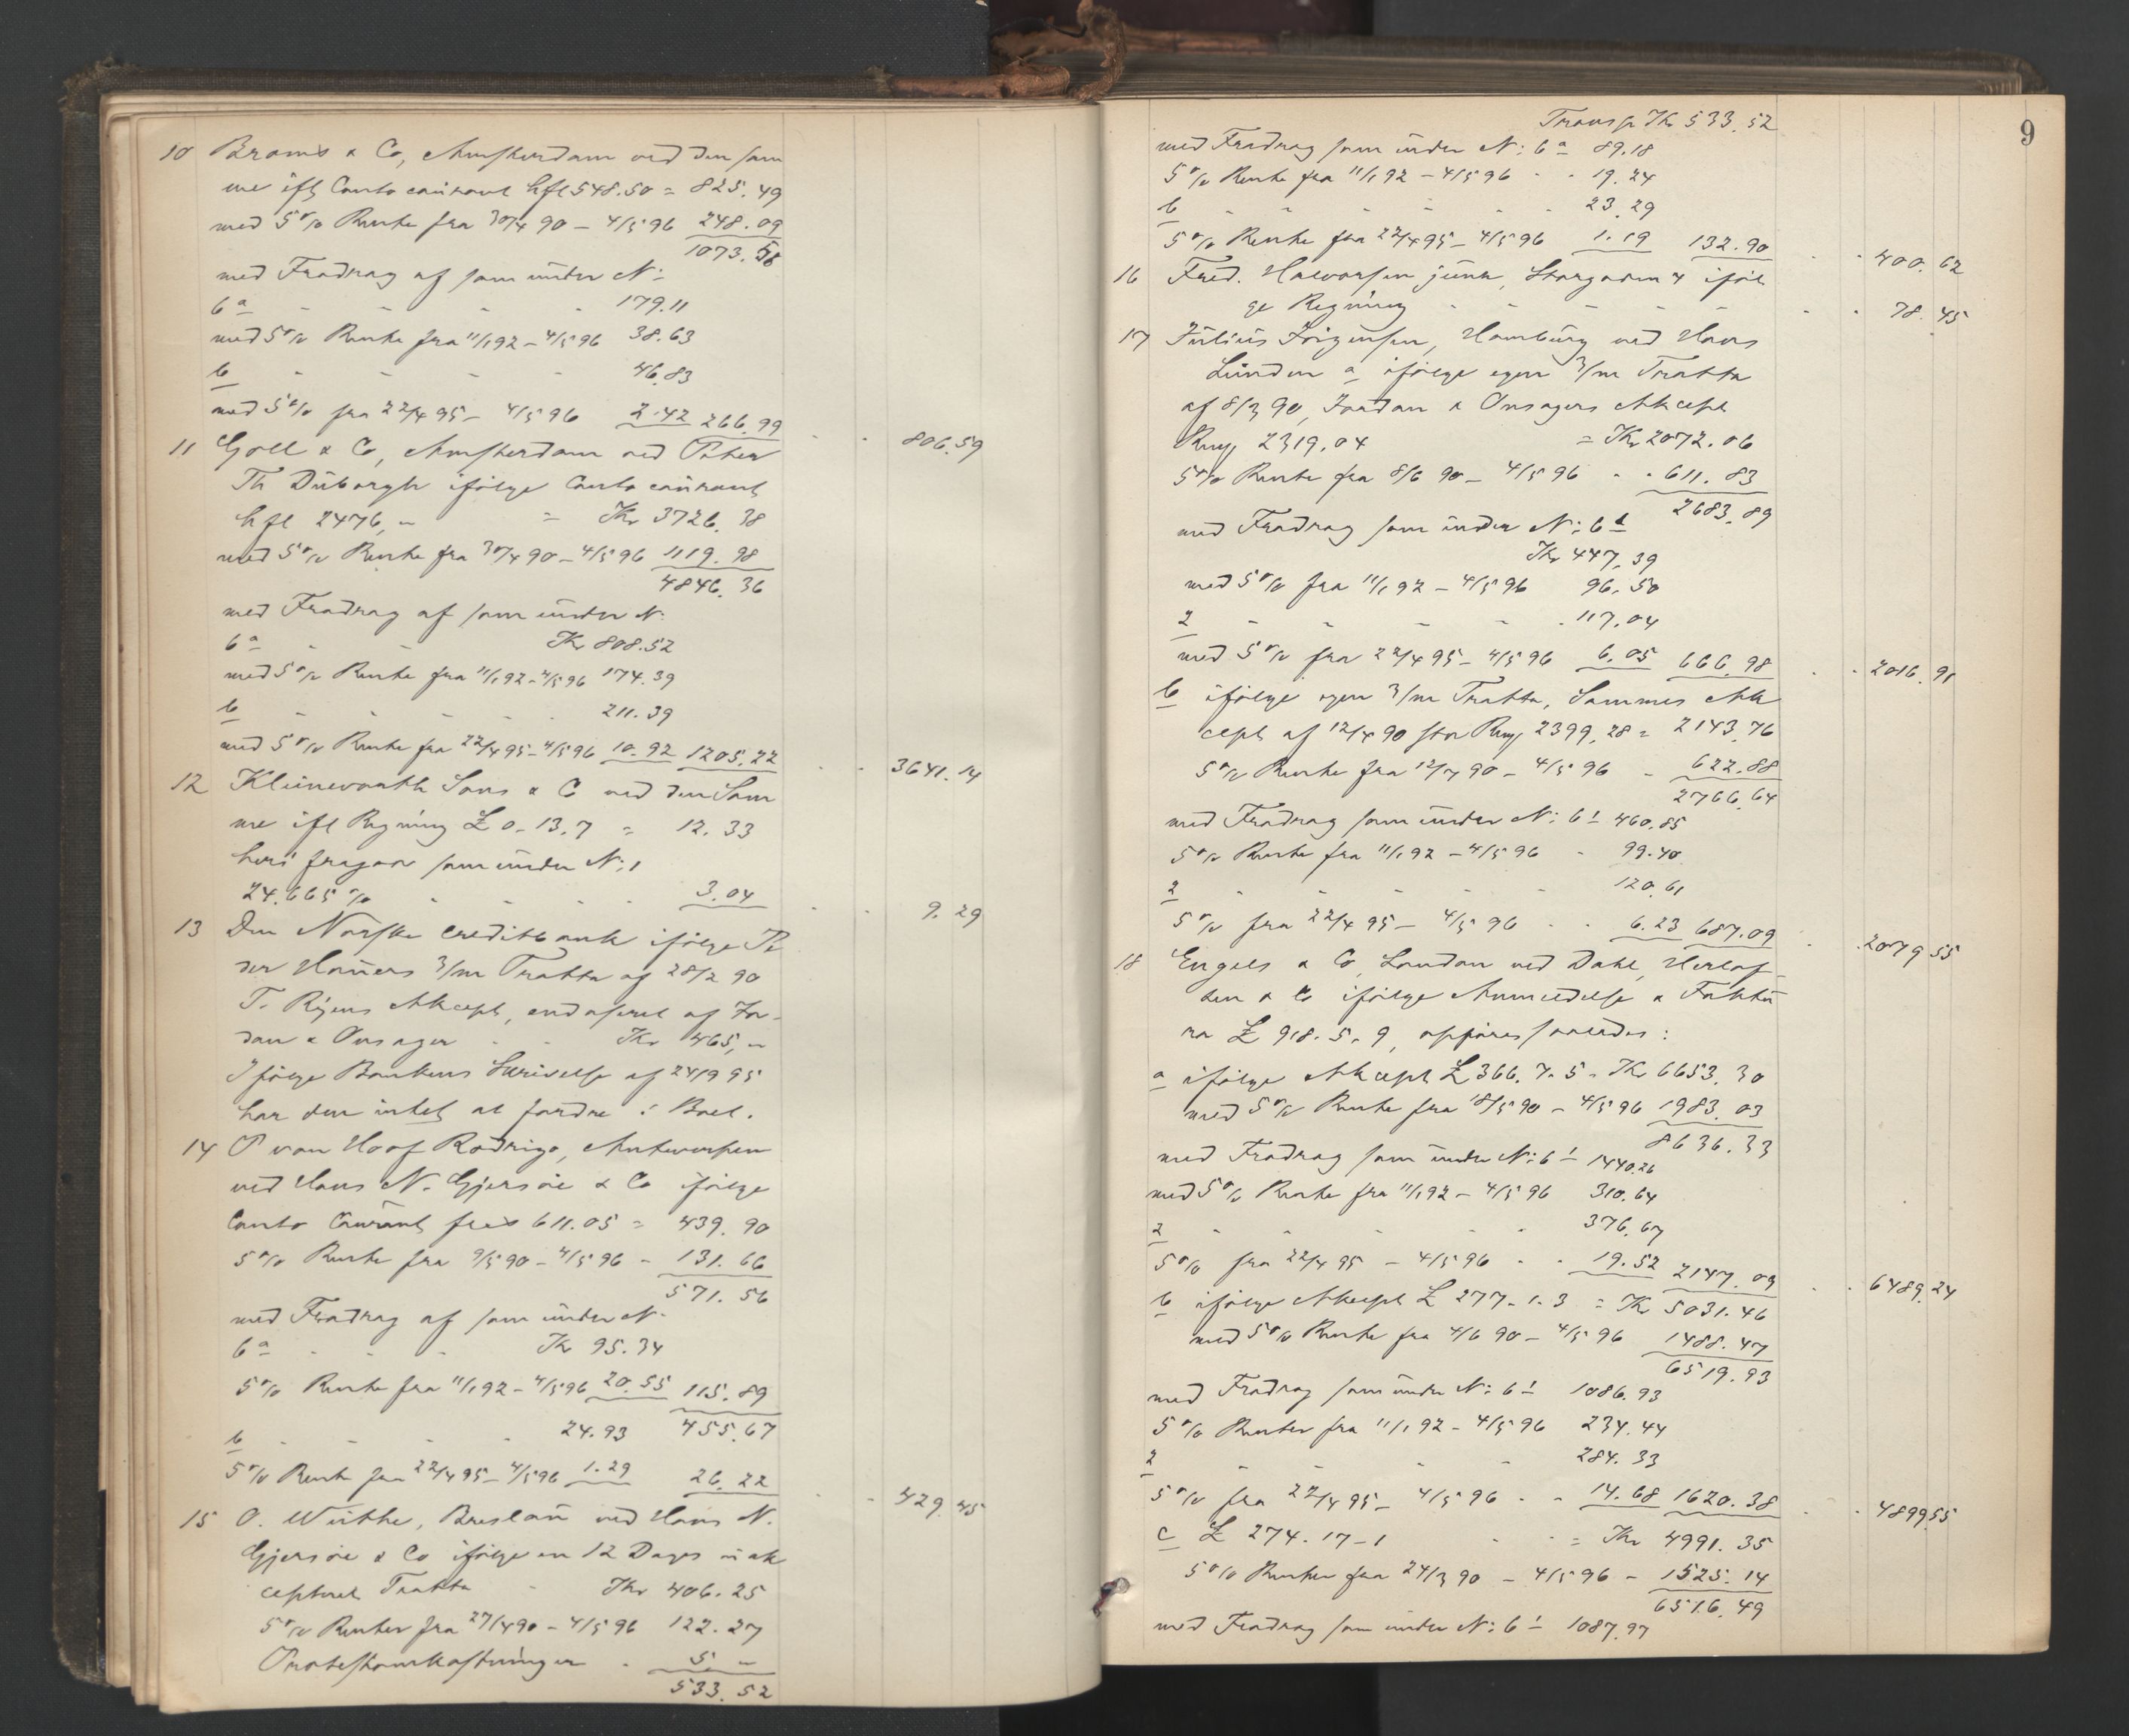 10 Broms & Co, Amsterdam ved den sam
me ifl Conto courant hfl 548.50 = 825.49
med 5% Rente fra 30/4 90 – 4/5 96 248.09
1073.58
med Fradrag af som under N:
6a - - - - 179.11
med 5% Rente fra 11/1 92 – 4/5 96 38.63
b - - - - 46.83
med 5% fra 22/4 95 – 4/5 96 2.42 266.99 - - 806.59
11 Goll & Co, Amsterdam ved Peter
Th Duborgh ifølge Conto courant
hfl 2476,- = Kr 3726.38
med 5% Rente fra 30/4 90 – 4/5 96 1119.98
4846.36
med Fradrag af som under N:
6a - - Kr 808.52
med 5% Rente fra 11/1 92 – 4/5 96 174.39
b - - - - - 211.39
med 5% Rente fra 22/4 95 – 4/5 96 10.92 1205.22 - - 3641.14
12 Kleinworth Sons & C ved den Sam
me ifl Regning £ 0-13.7 = 12.33
heri fragaar som under N: 1
24.665% - - - - 3.04 - - 9.29
13 Den Norske Creditbank ifølge Pe
der 3/m Tratta af 28/2 90
T. Ryens Akcept, endosseret af Jor-
dan & Onsager - - Kr 465,-
Ifølge Bankens Skrivelse af 24/9 95
har den intet at fordre i Boet.
14 P van Hoof Rodrigo, Antwerpen
ved Hans N. Gjersøe & Co ifølge
Conto Courant frcs 611.05 = 439.90
5% Rente fra 9/5 90 – 4/5 96 - 131.66
571.56
med Fradrag af som under N.
6a - - - Kr 95.34
5% Rente fra 11/1 92 – 4/5 96 20.55 115.89
b - - - - 24.93 455.67
5% Rente fra 22/4 95 – 4/5 96 1.29 26.22 - - 429.45
15 O. Wuthe, Breslau ved Hans N.
Gjersøe & Co ifølge en 12 Dages uak
cepteret Tratta - Kr 406.25
5% Renter fra 27/4 90 – 4/5 96 122.27
Protestomkostninger - 5.-
533.52
9
Transp Kr 533.52
med Fradrag som under N: 6a 89.18
5% Rente fra 11/1 92 – 4/5 96 - - 19.24
b - - - - - - 23.29
5% Rente fra 22/4 95 – 4/5 96 1.19 132.90 - - 400.62
16 Fred. Halvorsen junr, Storgaden 4 iføl
ge Regning - - - - - - - 78.45
17 Julius Jörgensen, Hamburg ved Hans
Lunden a ifølge egen 3/m Tratta
af 8/3 90, Jordan & Onsagers Akcept
Rmj 2319.04 = Kr 2072.06
5% Rente fra 8/6 90 – 4/5 96 - - 611.83
2683.89
med Fradrag som under N: 6 1
Kr 447.39
med 5% fra 11/1 92 – 4/5 96 96.50
2 - - - - - 117.04
med 5% fra 22/4 95 – 4/5 96 6.05 666.98 - - 2016.91
b ifølge egen 3/m Tratta, Sammes Ak
cept af 12/4 90 stor Rmj 2399.28 = 2143.76
5% Rente fra 12/7 90 – 4/5 96 - 622.88
2766.64
med Fradrag som under N: 6 1 460.85
5% Rente fra 11/1 92 – 4/5 96 - 99.40
2 - - - - - 120.61
5% fra 22/4 95 – 4/5 96 - - 6.23 687.09 - 2079.55
18 Engels & Co, London ved Dahl, Herlof-
sen & Co ifølge Anmeldelse & Faktu
ra £ 918.5.9, opføres saaledes:
a ifølge Akcept £ 366.7.5 = Kr 6653.30
med 5% Rente fra 18/5 90 – 4/5 96 1983.03
8636.33
med Fradrag som under N: 6 1 1440.26
med 5% Rente fra 11/1 92 – 4/5 96 310.64
2 - - - - - 376.67
5% fra 22/4 95 – 4/5 96 - - 19.52 2147.09 - - 6489.24
b ifølge Akcept £ 277-1-3 = Kr 5031.46
med 5% Rente fra 4/6 90 – 4/5 96 1488.47
6519.93
med Fradrag som under N: 6 1 1086.93
5% Renter fra 11/1 92 – 4/5 96 234.44
2 - - - - 284.33
5% fra 22/4 95 – 4/5 96 - - 14.68 1620.38 - - 4899.55
c £ 274.17-1 - - = Kr 4991.35
5% Renter fra 24/3 90 – 4/5 96 - 1525.14
6516.49
med Fradrag som under N: 6 1 1087.97